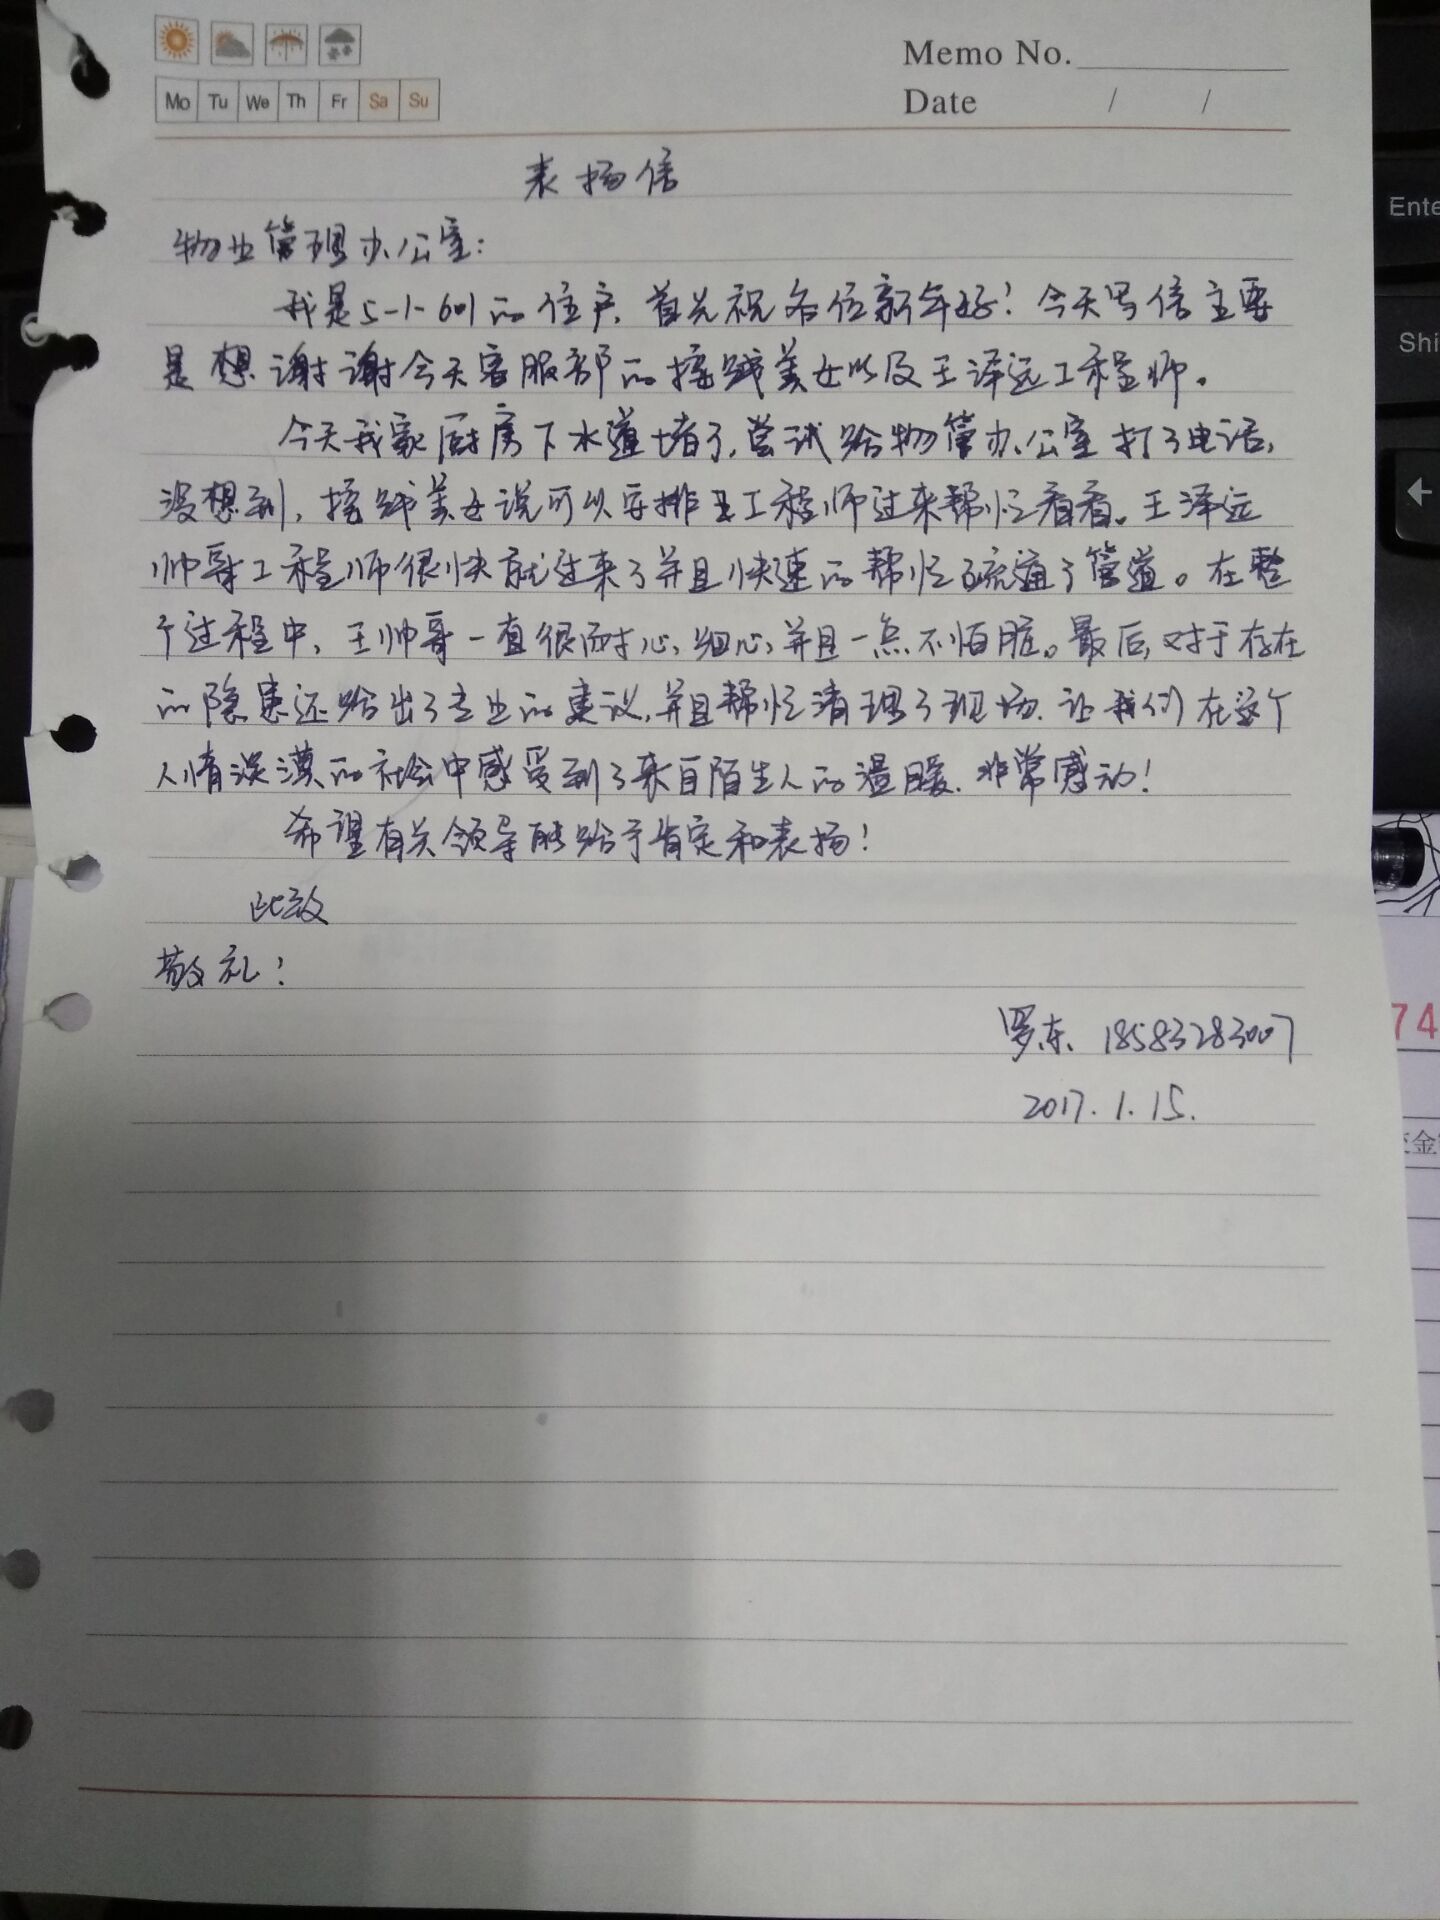 Memo No.
Mo Tu We Th Fr Sa Su
Date / /
表扬信
物业管理办公室:
我是5-1-601的住户,首先祝各位新年好!今天写信主要
是想谢谢今天客服部的接线美女以及王泽远工程师。
今天我家厨房下水道堵了,尝试给物管办公室打了电话,
没想到,接线美女说可以安排王工程师过来帮忙看看。王泽远
帅哥工程师很快就过来了并且快速的帮忙疏通了管道。在整
个过程中,王帅哥一直很耐心,细心,并且一点不怕脏。最后,对于存在
的隐患还给出了专业的建议,并且帮忙清理了现场.让我们在这个
人情淡漠的社会中感受到了来自陌生人的温暖.非常感动!
希望有关领导能给予肯定和表扬!
此致
敬礼!
罗东 18583283007
2017.1.15.
Ente
Shi
74
金